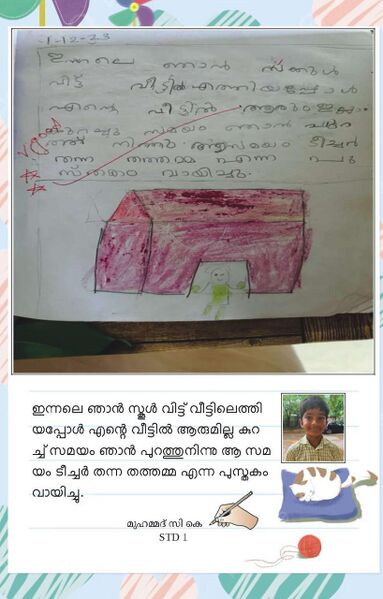 1-12-23
ഇന്നലെ ഞാൻ സ്ക്കൂൾ
വിട്ട് വീട്ടിൽ എത്തിയപ്പോൾ
എന്റെ വീട്ടിൽ ആരും ഇല്ല
കുറച്ചു സമയം ഞാൻ പുറ
ത്ത് നിന്നു. ആ സമയം ടീച്ചർ
തന്ന തത്തമ്മ എന്ന പു
സ്തകം വായിച്ചു.
Good
ഇന്നലെ ഞാൻ സ്കൂൾ വിട്ട് വീട്ടിലെത്തി
യപ്പോൾ എന്റെ വീട്ടിൽ ആരുമില്ല കുറ
ച്ച് സമയം ഞാൻ പുറത്തുനിന്നു ആ സമ
യം ടീച്ചർ തന്ന തത്തമ്മ എന്ന പുസ്തകം
വായിച്ചു.
മുഹമ്മദ് സി കെ
STD 1